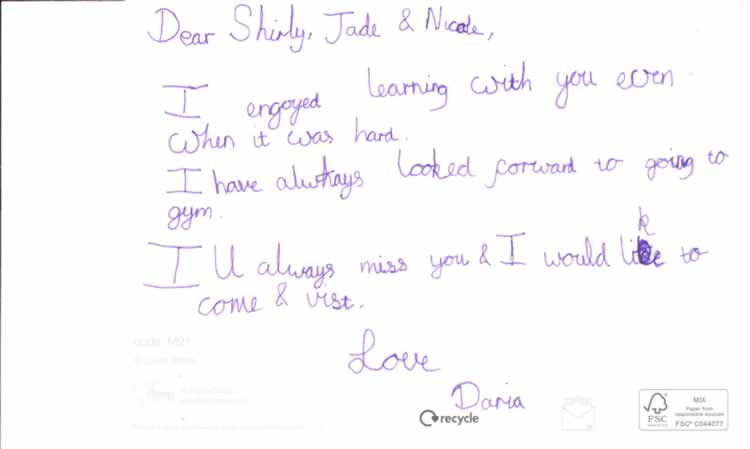 Dear Shirly, Jade & Nicole,
I engoyed learning with you even
when it was hard.
I have alwhays looked forward to going to
gym.
k
I ll always miss you & I would like to
come & vist.
Love
Daria
code: M91
recycle
FSC
MIX
Paper from
responsible sources
FSC® C044077